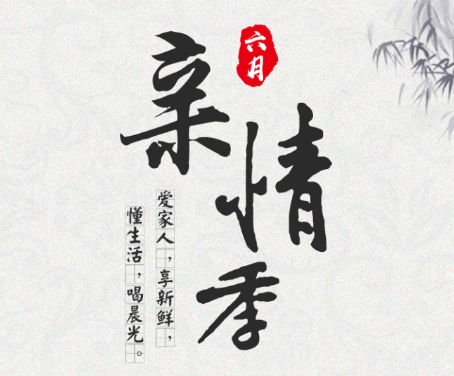 六月
亲情季
爱家人，享新鲜，
懂生活，喝晨光。